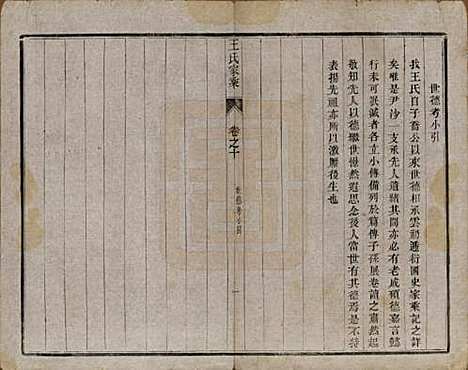 世德考小引
我王氏自子喬公以來世承雲礽遞衍國史家乘記之詳
矣唯是尹沙一支承先人遺緒其間亦必有老成碩德嘉言懿
行未可泯滅者各立小傳備列於篇俾子孫展卷讀之肅然起
敬知先人以德繼世愀然遐思念後人當世有其德焉是不特
表揚先頭亦所以激厲後生也
王氏家乘
卷之十
世德考小引
一